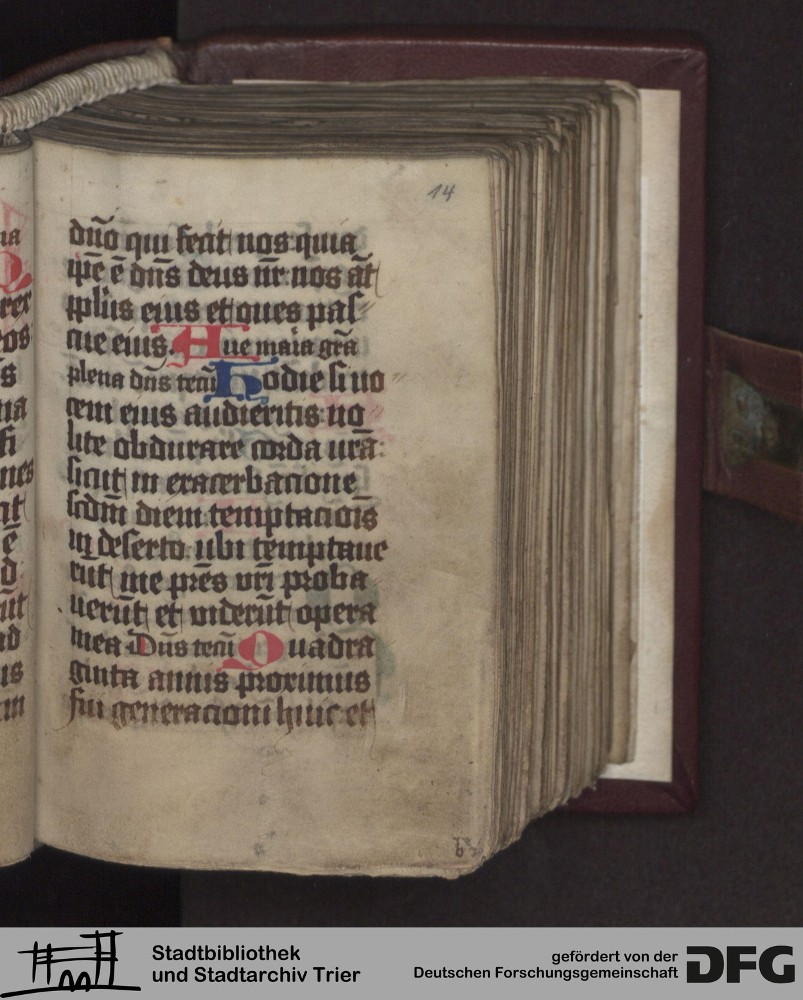 14
dño qui fecit nos quia
ip̄e ē dñs deus nr̄ nos āt
pplūs eius et oues pas
cue eius. Aue maia gr̄a
plena dñs tecū Hodie si uo
cem eius audieritis no
lite obdurare corda urā
sicut in exacerbacione
scdm̄ diem temptaciōis
in deserto ubi temptaue
rūt me pr̄es urī proba
uerūt et viderūt opera
mea Dñs tecū Quadra
ginta annis proximus
fui generacioni huic et
Stadtbibliothek
und Stadtarchiv Trier
gefördert von der
Deutschen Forschungsgemeinschaft
DFG